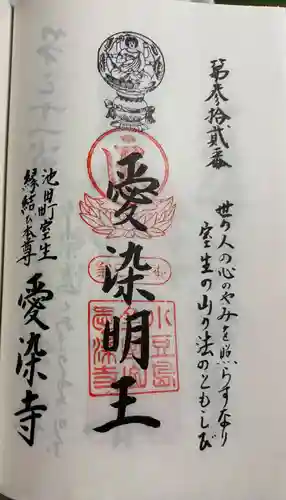 第参拾貳番
世の人の心のやみを照らすなり
室生の山の法のともしび
愛染明王
小豆島
愛染寺
池田町室生
縁結び本尊
愛染寺